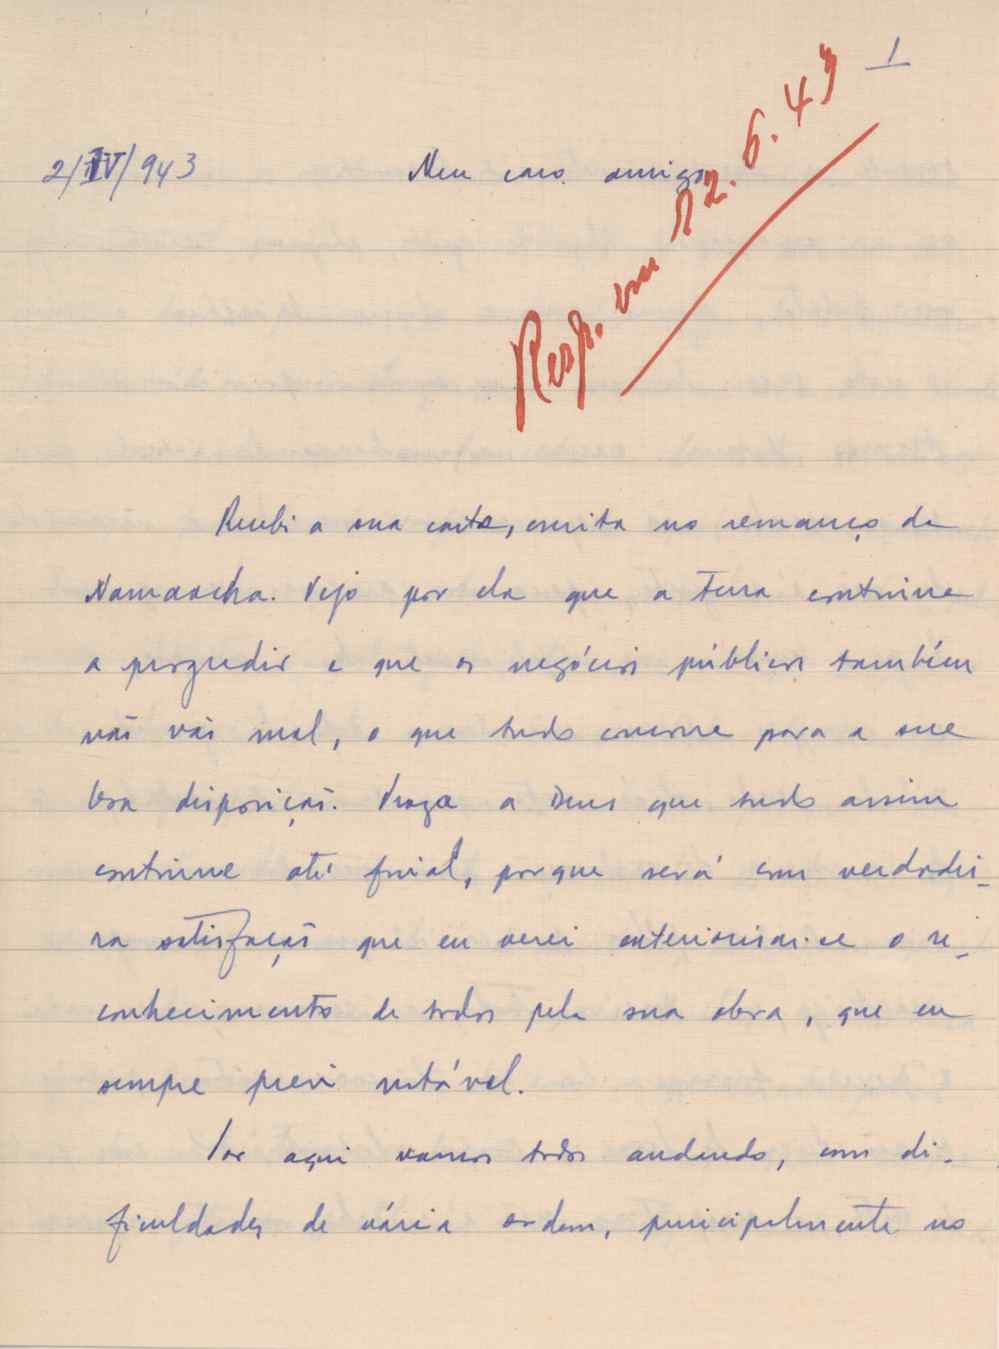 1
2/IV/943
Meu caro amigo
Resp. em 12.6.43
Recebi a sua carta, escrita no remanço da
Namaacha. Vejo por ela que a terra continua
a progredir e que os negócios públicos também
não vão mal, o que tudo concorre para a sua
boa disposição. Praza a Deus que tudo assim
continue até final, porque será com verdadei-
ra satisfação que eu verei exteriorisar-se o re-
conhecimento de todos pela sua obra, que eu
sempre previ notável.
Por aqui vamos todos andando, com di-
ficuldades de vária ordem, principalmente no